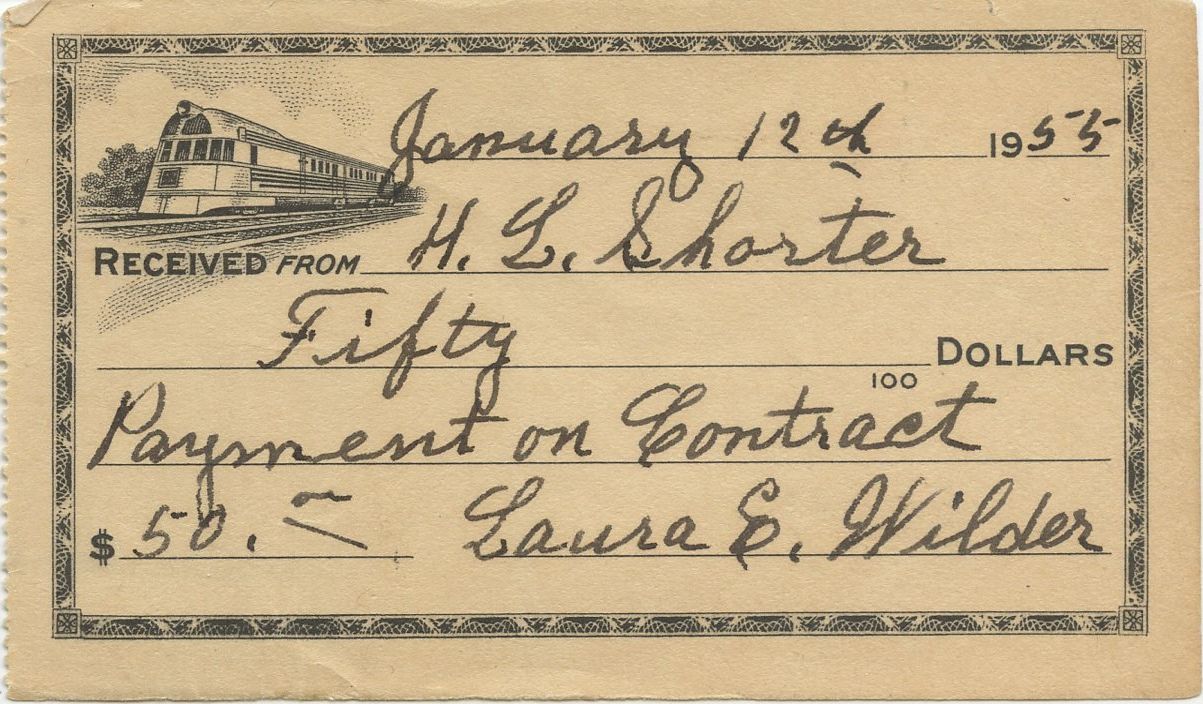 January 12th 1955
RECEIVED FROM H. L. Shorter
Fifty DOLLARS
100
Payment on Contract
$ 50. — Laura E. Wilder